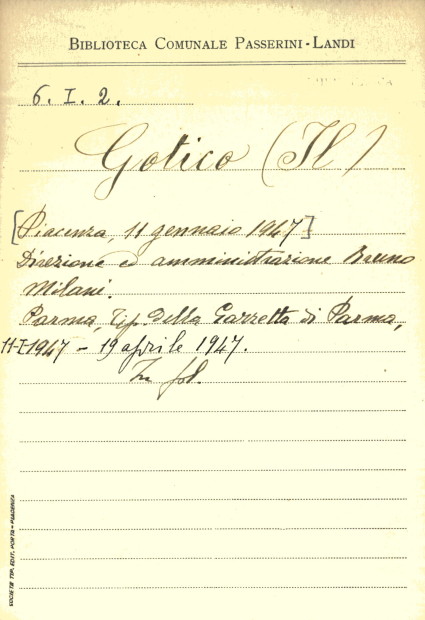 BIBLIOTECA COMUNALE PASSERINI-LANDI
6. I. 2.
Gotico (Il)
[Piacenza, 11 gennaio 1947]
Direzione ed amministrazione Bruno
Milani.
Parma, Tip. Della Gazzetta di Parma,
11-I-1947 - 19 aprile 1947.
In fol.
SOCIETÀ TIP. EDIT. PORTA - PIACENZA